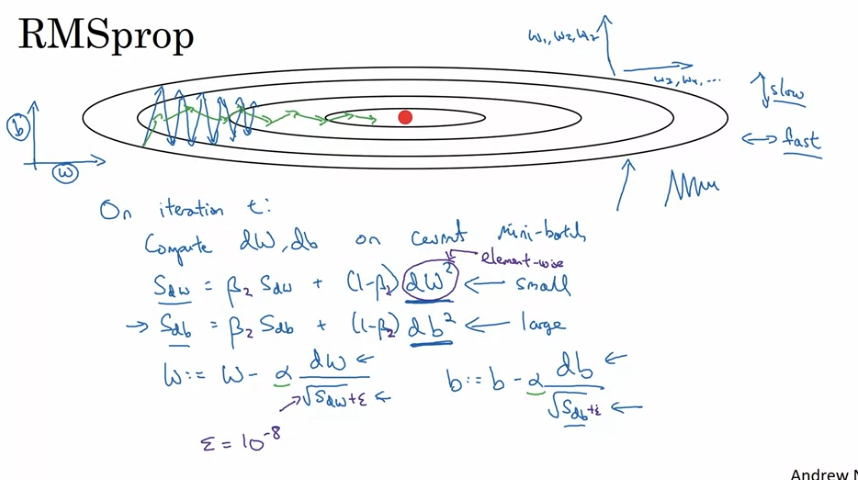 RMSprop
w₁, w₂, w₇
w₃, w₄, ...
slow
fast
b
w
On iteration t:
Compute dW, db on current mini-batch
element-wise
S_dw = β₂ S_dw + (1-β₂) dW² ← small
→ S_db = β₂ S_db + (1-β₂) db² ← large
W := W - α dW / √S_dw + ε ←
b := b - α db / √S_db + ε ←
ε = 10⁻⁸
Andrew N